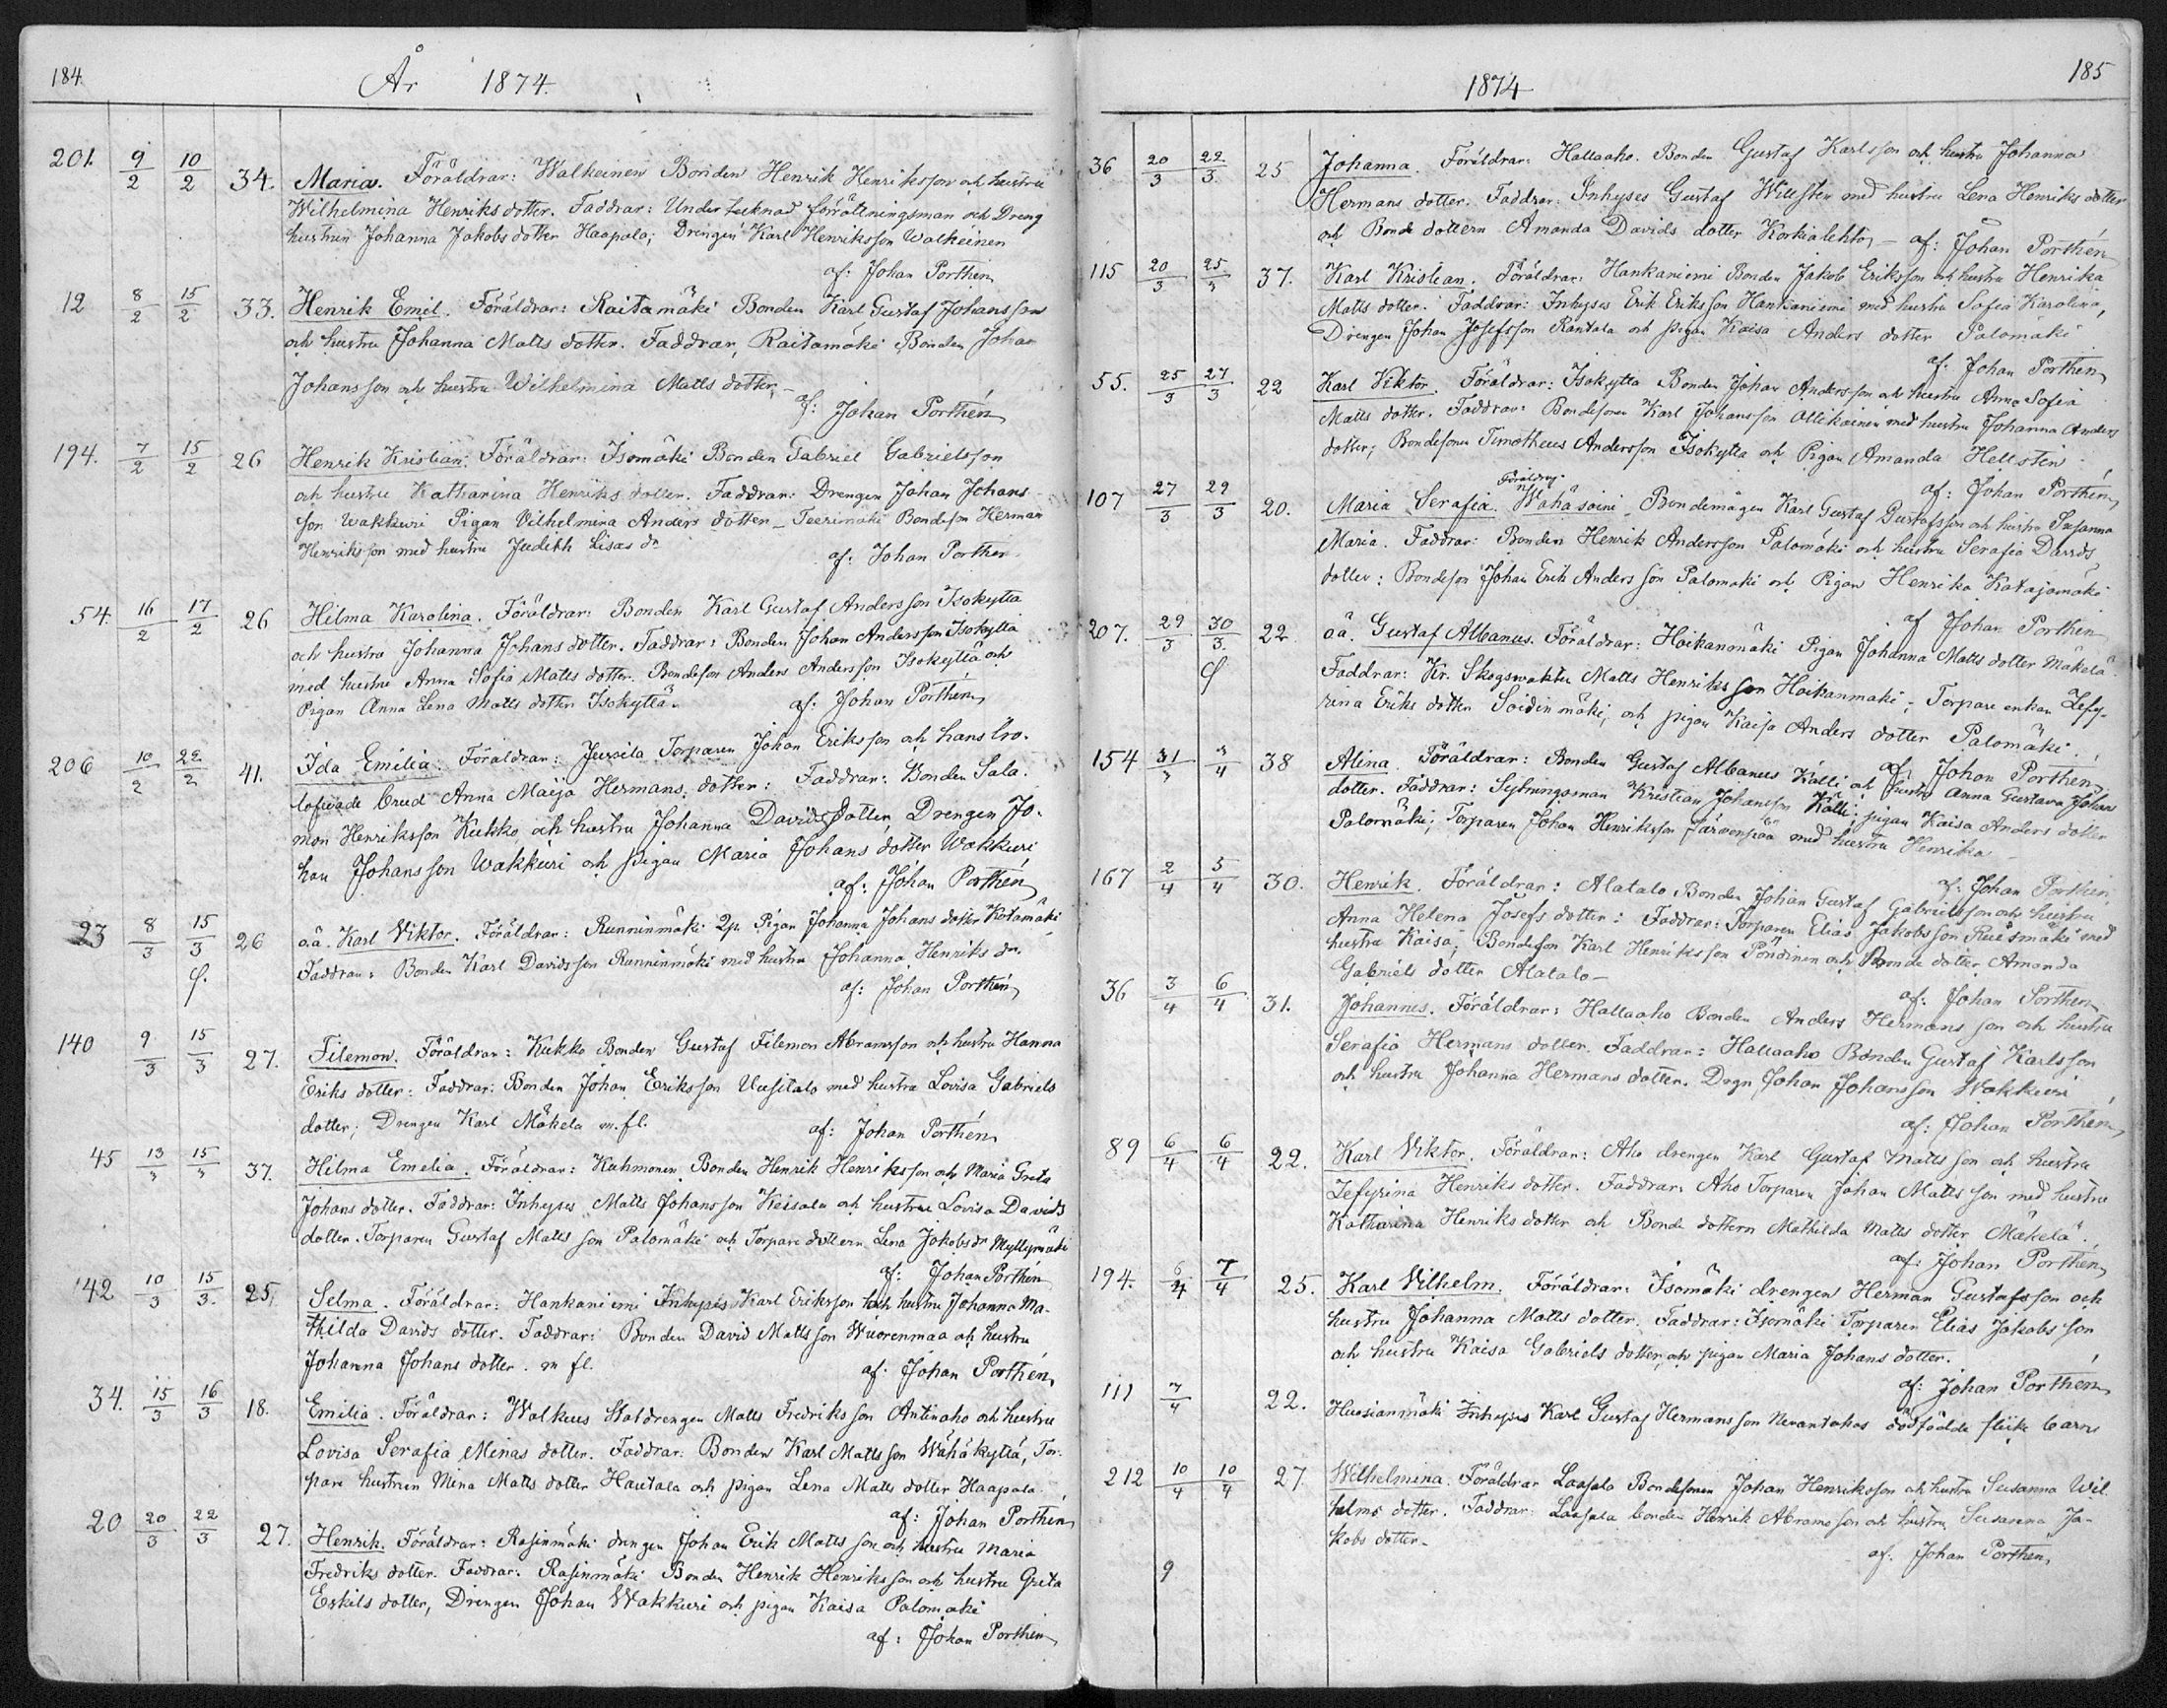 184.
År 1874.
201. 9/2 10/2 34. Maria. Föräldrar: Walkeinen Bonden Henrik Henriksson och hustru
Wilhelmina Henriks dotter. Faddrar: Undertecknad förrättningsman och Dreng
hustrun Johanna Jakobs dotter Haapala; Drengen Karl Henriksson Walkeinen
af: Johan Porthén
12 8/2 15/2 33. Henrik Emil. Föräldrar: Raitamäki Bonden Karl Gustaf Johansson
och hustru Johanna Matts dotter. Faddrar, Raitamäki Bonden Johan
Johansson och hustru Wilhelmina Matts dotter,
af: Johan Porthén
194. 7/2 15/2 26 Henrik Kristian. Föräldrar: Isomäki Bonden Gabriel Gabrielsson
och hustru Katharina Henriks dotter. Faddrar: Drengen Johan Johans
son Wakkuri Pigan Vilhelmina Anders dotter_ Teerimäki Bondeson Herman
Henriksson med hustru Judith Lisas dr
af: Johan Porthén
54. 16/2 17/2 26 Hilma Karolina. Föräldrar: Bonden Karl Gustaf Andersson Isokyttä
och hustru Johanna Johans dotter. Faddrar: Bonden Johan Andersson Isokyttä
med hustru Anna Sofia Matts dotter. Bondeson Anders Andersson Isokyttä och
Pigan Anna Lena Matts dotter Isokyttä.
af: Johan Porthén
206 10/2 22/2 41. Ida Emilia. Föräldrar: Jussila Torparen Johan Eriksson och hans tro-
lofvade brud Anna Maija Hermans dotter: Faddrar: Bonden Salo-
mon Henriksson Kukko, och hustru Johanna Davidsdotter, Drengen Jo-
han Johansson Wakkuri och pigan Maria Johans dotter Wakkuri
af: Johan Porthén
23 8/3 15/3 26 o.ä. Karl Viktor. Föräldrar: Runninmäki Pigan Johanna Johans dotter Kotamäki
Faddrar: Bonden Karl Davidsson Runninmäki med hustru Johanna Henriks dr.
af: Johan Porthén
140 9/3 15/3 27. Filemon. Föräldrar: Kukko Bonden Gustaf Filemon Abramsson och hustru Hanna
Eriks dotter: Faddrar: Bonden Johan Eriksson Uusitalo med hustru Lovisa Gabriels
dotter; Drengen Karl Mäkelä m. fl.
af: Johan Porthén
45 13/3 15/3 37. Hilma Emelia. Föräldrar: Kuhmonen Bonden Henrik Henriksson och Maria Greta
Johans dotter. Faddrar: Inhyses Matts Johansson Keisala och hustru Lovisa Davids
dotter. Torparen Gustaf Matts son Palomäki och Torpare dottern Lena Jakobsdr Myllymäki
af: Johan Porthén
142 10/3 15/3. 25, Selma. Föräldrar: Hankaniemi Inhyses Karl Eriksson och hustru Johanna Ma-
thilda Davids dotter. Faddrar: Bonden David Matts son Wuorenmaa och hustru
Johanna Johans dotter. m fl.
af: Johan Porthén
34. 15/3 16/3 18. Emilia. Föräldrar: Walkus Statdrengen Matts Fredriks son Antinaho och hustru
Lovisa Serafia Minas dotter. Faddrar: Bonden Karl Matts son Wähäkyttä, Tor-
pare hustrun Mina Matts dotter Hautala och pigan Lena Matts dotter Haapala
af: Johan Porthén
20 20/3 22/3 27. Henrik. Föräldrar: Rasinmäki drengen Johan Erik Matts son och hustru Maria
Fredriks dotter. Faddrar: Rasinmäki Bonden Henrik Henriksson och hustru Greta
Eskils dotter, Drengen Johan Wakkuri och pigan Kaisa Palomäki
af: Johan Porthén
185
1874
36 20/3 22/3 25 Johanna. Föräldrar: Hallaaho. Bonden Gustaf Karlsson och hustru Johanna
Hermans dotter. Faddrar: Inhyses Gustaf Willsten med hustru Lena Henriks dotter
och Bonde dottern Amanda Davids dotter Korkialehto, – af: Johan Porthén
115 20/3 25/3 37. Karl Kristian. Föräldrar: Hankaniemi Bonden Jakob Eriksson och hustru Henrika
Matts dotter. Faddrar: Inhyses Erik Eriksson Hankaniemi med hustru Sofia Karolina,
Drengen Johan Josefsson Rantala och pigan Kaisa Anders dotter Palomäki
af: Johan Porthén
55. 25/3 27/3 22 Karl Viktor. Föräldrar: Isokyttä Bonden Johan Andersson och hustru Anna Sofia
Matts dotter. Faddrar: Bondesonen Karl Johansson Ollikainen med hustru Johanna Anders
dotter; Bondesonen Timotheus Andersson Isokyttä och Pigan Amanda Hellsten
af: Johan Porthén
107 27/3 29/3 20. Maria Serafia. Föräldrar Wähäsoini – Bondemågen Karl Gustaf Gustafsson och hustru Susanna
Maria. Faddrar: Bonden Henrik Andersson Palomäki och hustru Serafia Davids
dotter: Bondeson Johan Erik Anders son Palomäki och Pigan Henrika Katajamäki
af Johan Porthén
207. 29/3 30/3. 22 o.ä. Gustaf Albanus. Föräldrar: Hoikanmäki Pigan Johanna Matts dotter Mäkelä.
Faddrar: Kr. Skogswaktn Matts Henriks son Hoikanmäki; Torpare enkan Zefy-
rina Eriks dotter Soidinmäki, och pigan Kaisa Anders dotter Palomäki.
af Johan Porthén
154 31/3 3/4 38 Alina. Föräldrar: Bonden Gustaf Albanus Källi och hustru Anna Gustava Johans
dotter. Faddrar: Sytningsman Kristian Johansson Källi; pigan Kaisa Anders dotter
Palomäki; Torparen Johan Henriksson Järvenpää med hustru Henrika –
af: Johan Porthén
167 2/4 5/4 30. Henrik. Föräldrar: Alatalo Bonden Johan Gustaf Gabrielsson och hustru
Anna Helena Josefs dotter: Faddrar: Torparen Elias Jakobsson Ruismäki med
hustru Kaisa; Bondeson Karl Henriksson Pöndinen och Bonde dotter Amanda
Gabriels dotter Alatalo –
af: Johan Porthén
36 3/4 6/4 31. Johannes. Föräldrar: Hallaaho Bonden Anders Hermans son och hustru
Serafia Hermans dotter. Faddrar: Hallaaho Bonden Gustaf Karlsson
och hustru Johanna Hermans dotter. Drgn Johan Johansson Wakkuri
af: Johan Porthén
89 6/4 6/4 22. Karl Viktor. Föräldrar: Aho drengen Karl Gustaf Matts son och hustru
Zefyrina Henriks dotter. Faddrar: Aho Torparen Johan Matts son med hustru
Katharina Henriks dotter och Bonde dottern Mathilda Matts dotter Mäkelä.
af: Johan Porthén
194. 6/4 7/4 25. Karl Vilhelm. Föräldrar: Isomäki drengen Herman Gustafsson och
hustru Johanna Matts dotter. Faddrar: Isomäki Torparen Elias Jakobs son
och hustru Kaisa Gabriels dotter, och pigan Maria Johans dotter.
af: Johan Porthén
111 7/4 22. Huosianmäki Inhyses Karl Gustaf Hermansson dödfödda flicke barn
212 10/4 10/4 27. Wilhelmina. Föräldrar Laasala Bondesonen Johan Henriksson och hustru Susanna Wil
helms dotter. Faddrar: Laasala bonden Henrik Abramsson och hustru Susanna Ja-
kobs dotter –
af: Johan Porthén
9